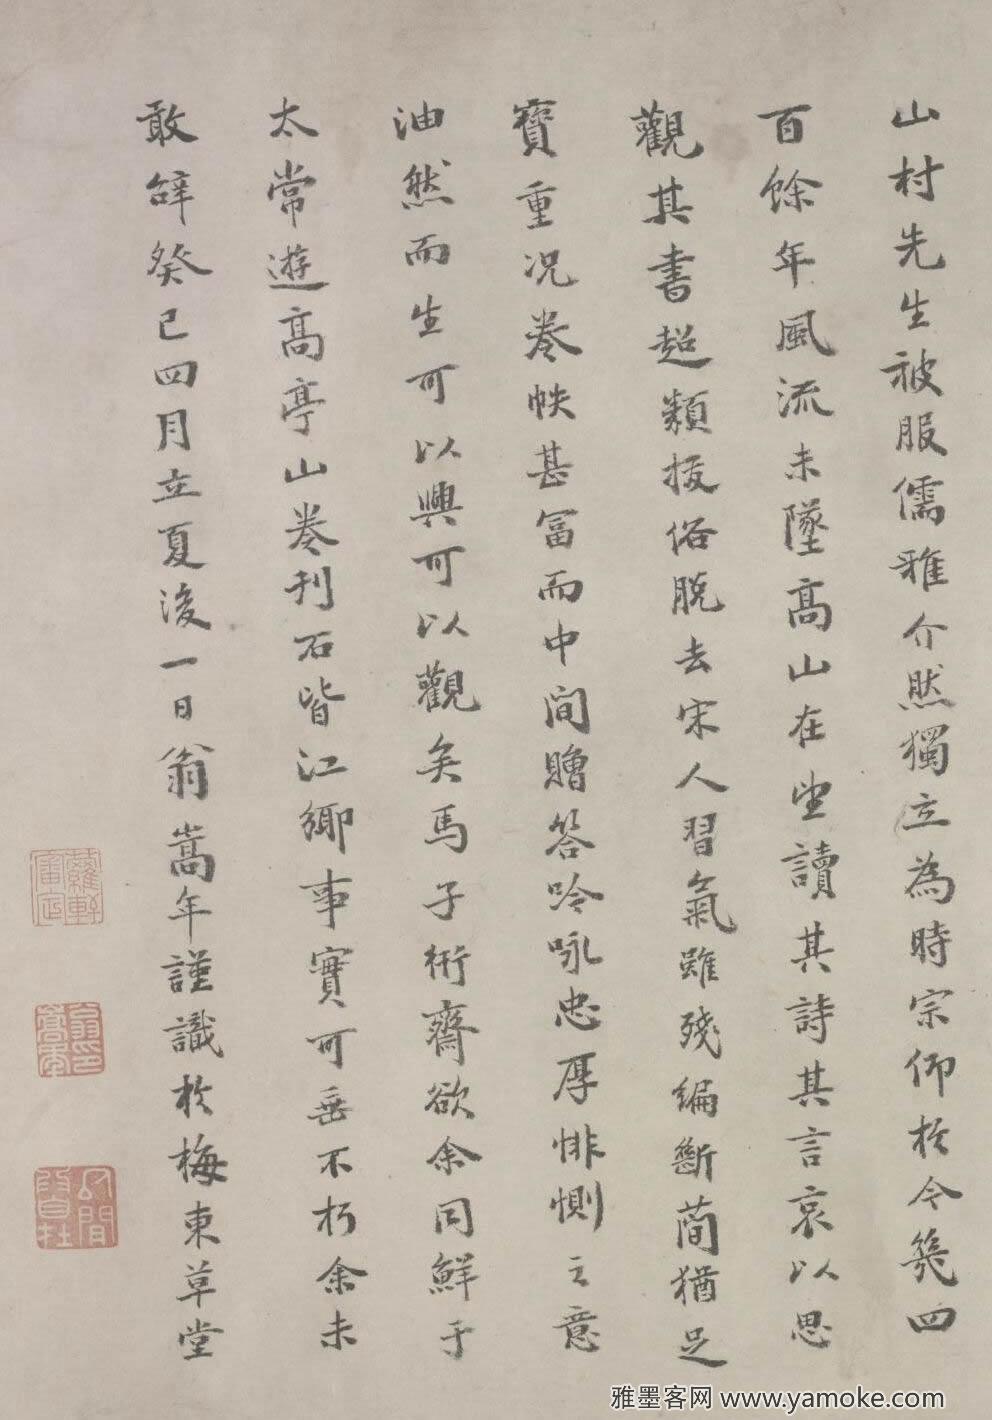 山村先生被服儒雅介然獨立為時宗仰於今幾四
百餘年風流未墜高山在望讀其詩其言哀以思
觀其書超類拔俗脫去宋人習氣雖殘編斷蕳猶足
寶重況卷帙甚冨而中間贈答吟咏忠厚悱惻之意
油然而生可以興可以觀矣馬子衎齋欲余同鮮于
太常遊高亭山卷刊石皆江鄉事實可垂不朽余未
敢辭癸巳四月立夏後一日翁嵩年謹識於梅東草堂
蘿軒
翁印
嵩年
雅墨客网 www.yamoke.com